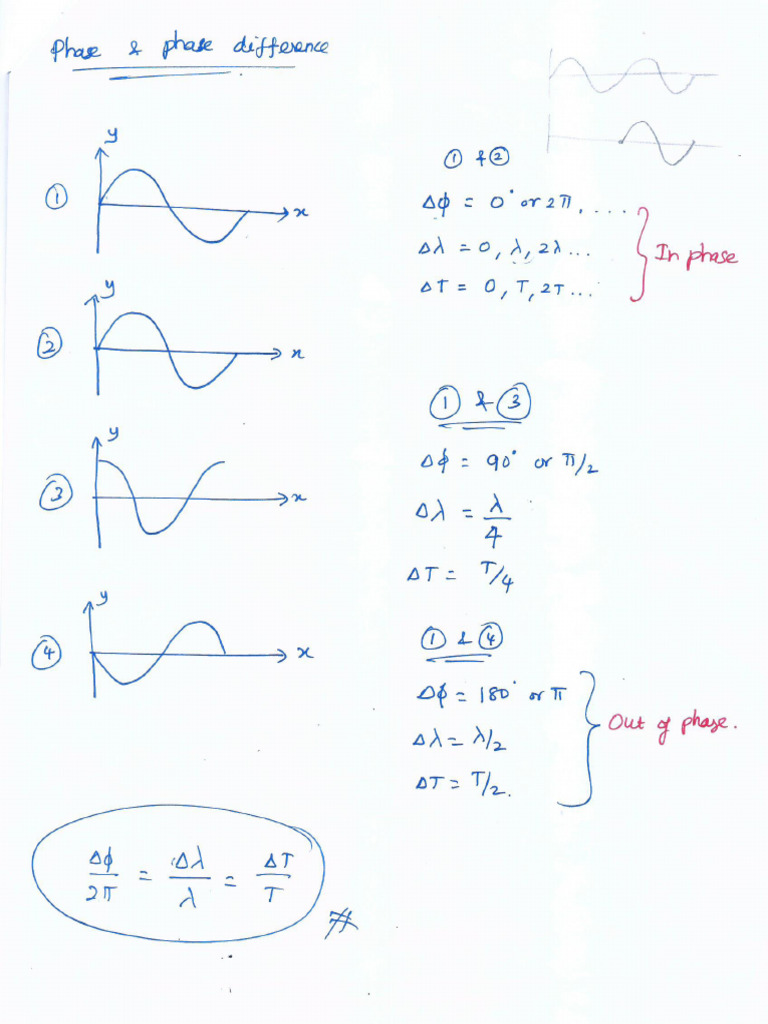 Phase & phase difference
① y x
② y x
③ y x
④ y x
① & ②
Δϕ = 0° or 2π, ....
Δλ = 0, λ, 2λ ...
ΔT = 0, T, 2T ...
In phase
① & ③
Δϕ = 90° or π/2
Δλ = λ/4
ΔT = T/4
① & ④
Δϕ = 180° or π
Δλ = λ/2
ΔT = T/2.
Out of phase.
Δϕ/2π = Δλ/λ = ΔT/T